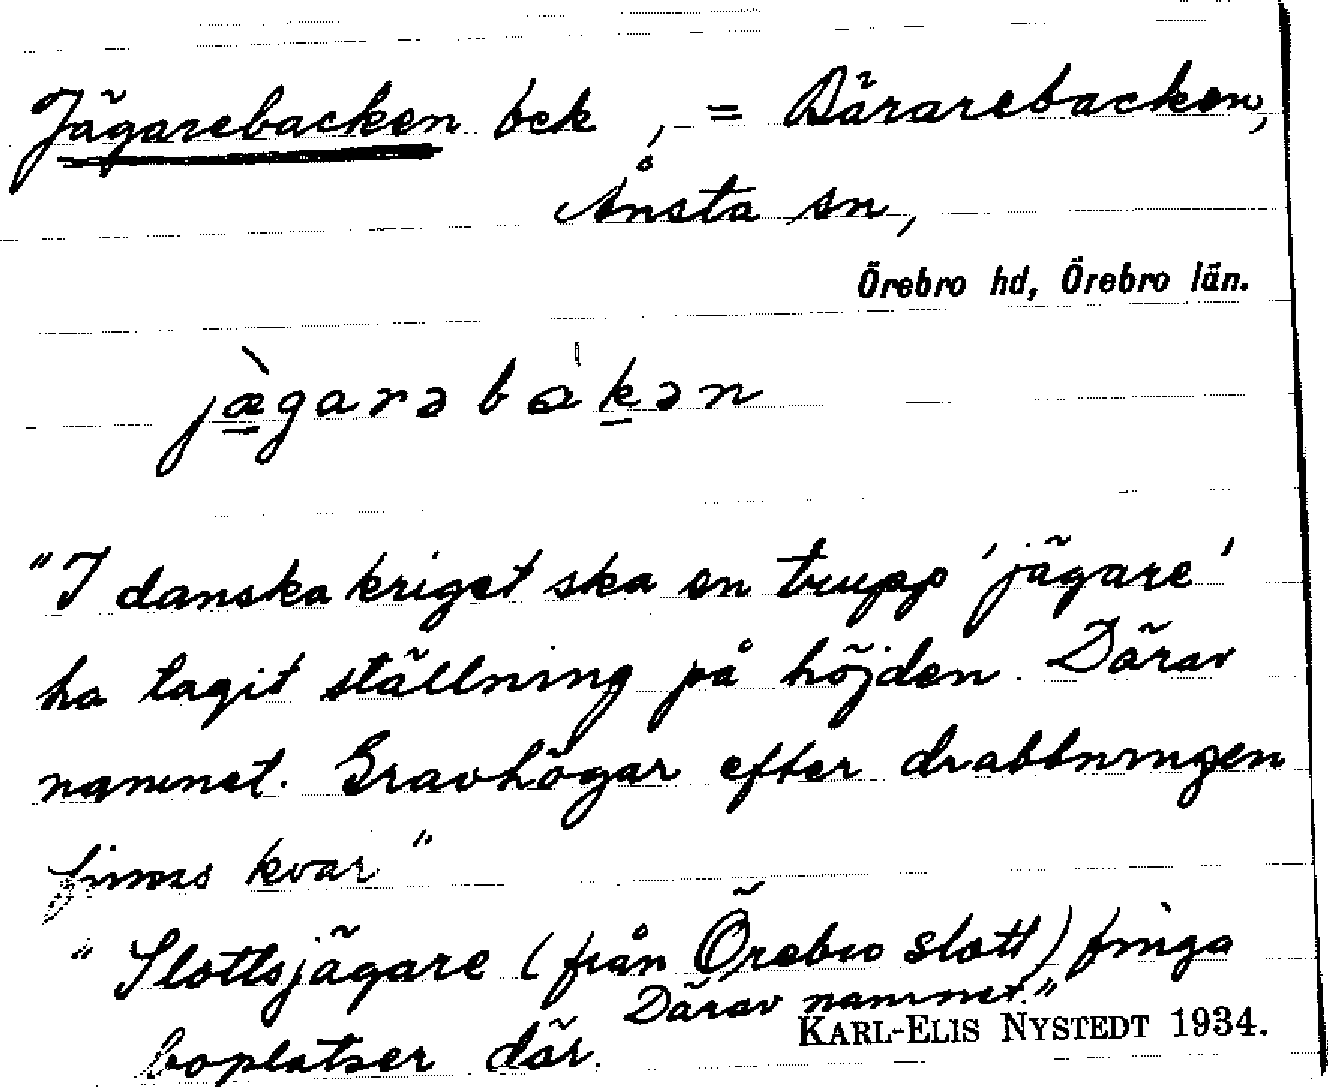 Jägarebacken bck, = Bärarebacken,
Ånsta sn,
Örebro hd, Örebro län.
jæ̀garəbakən
"I danska kriget ska en trupp 'jägare'
ha tagit ställning på höjden. Därav
namnet. Gravhögar efter drabbningen
finnas kvar"
"Slottsjägare (från Örebro slott) finga
boplatser där. Därav namnet."
KARL-ELIS NYSTEDT 1934.